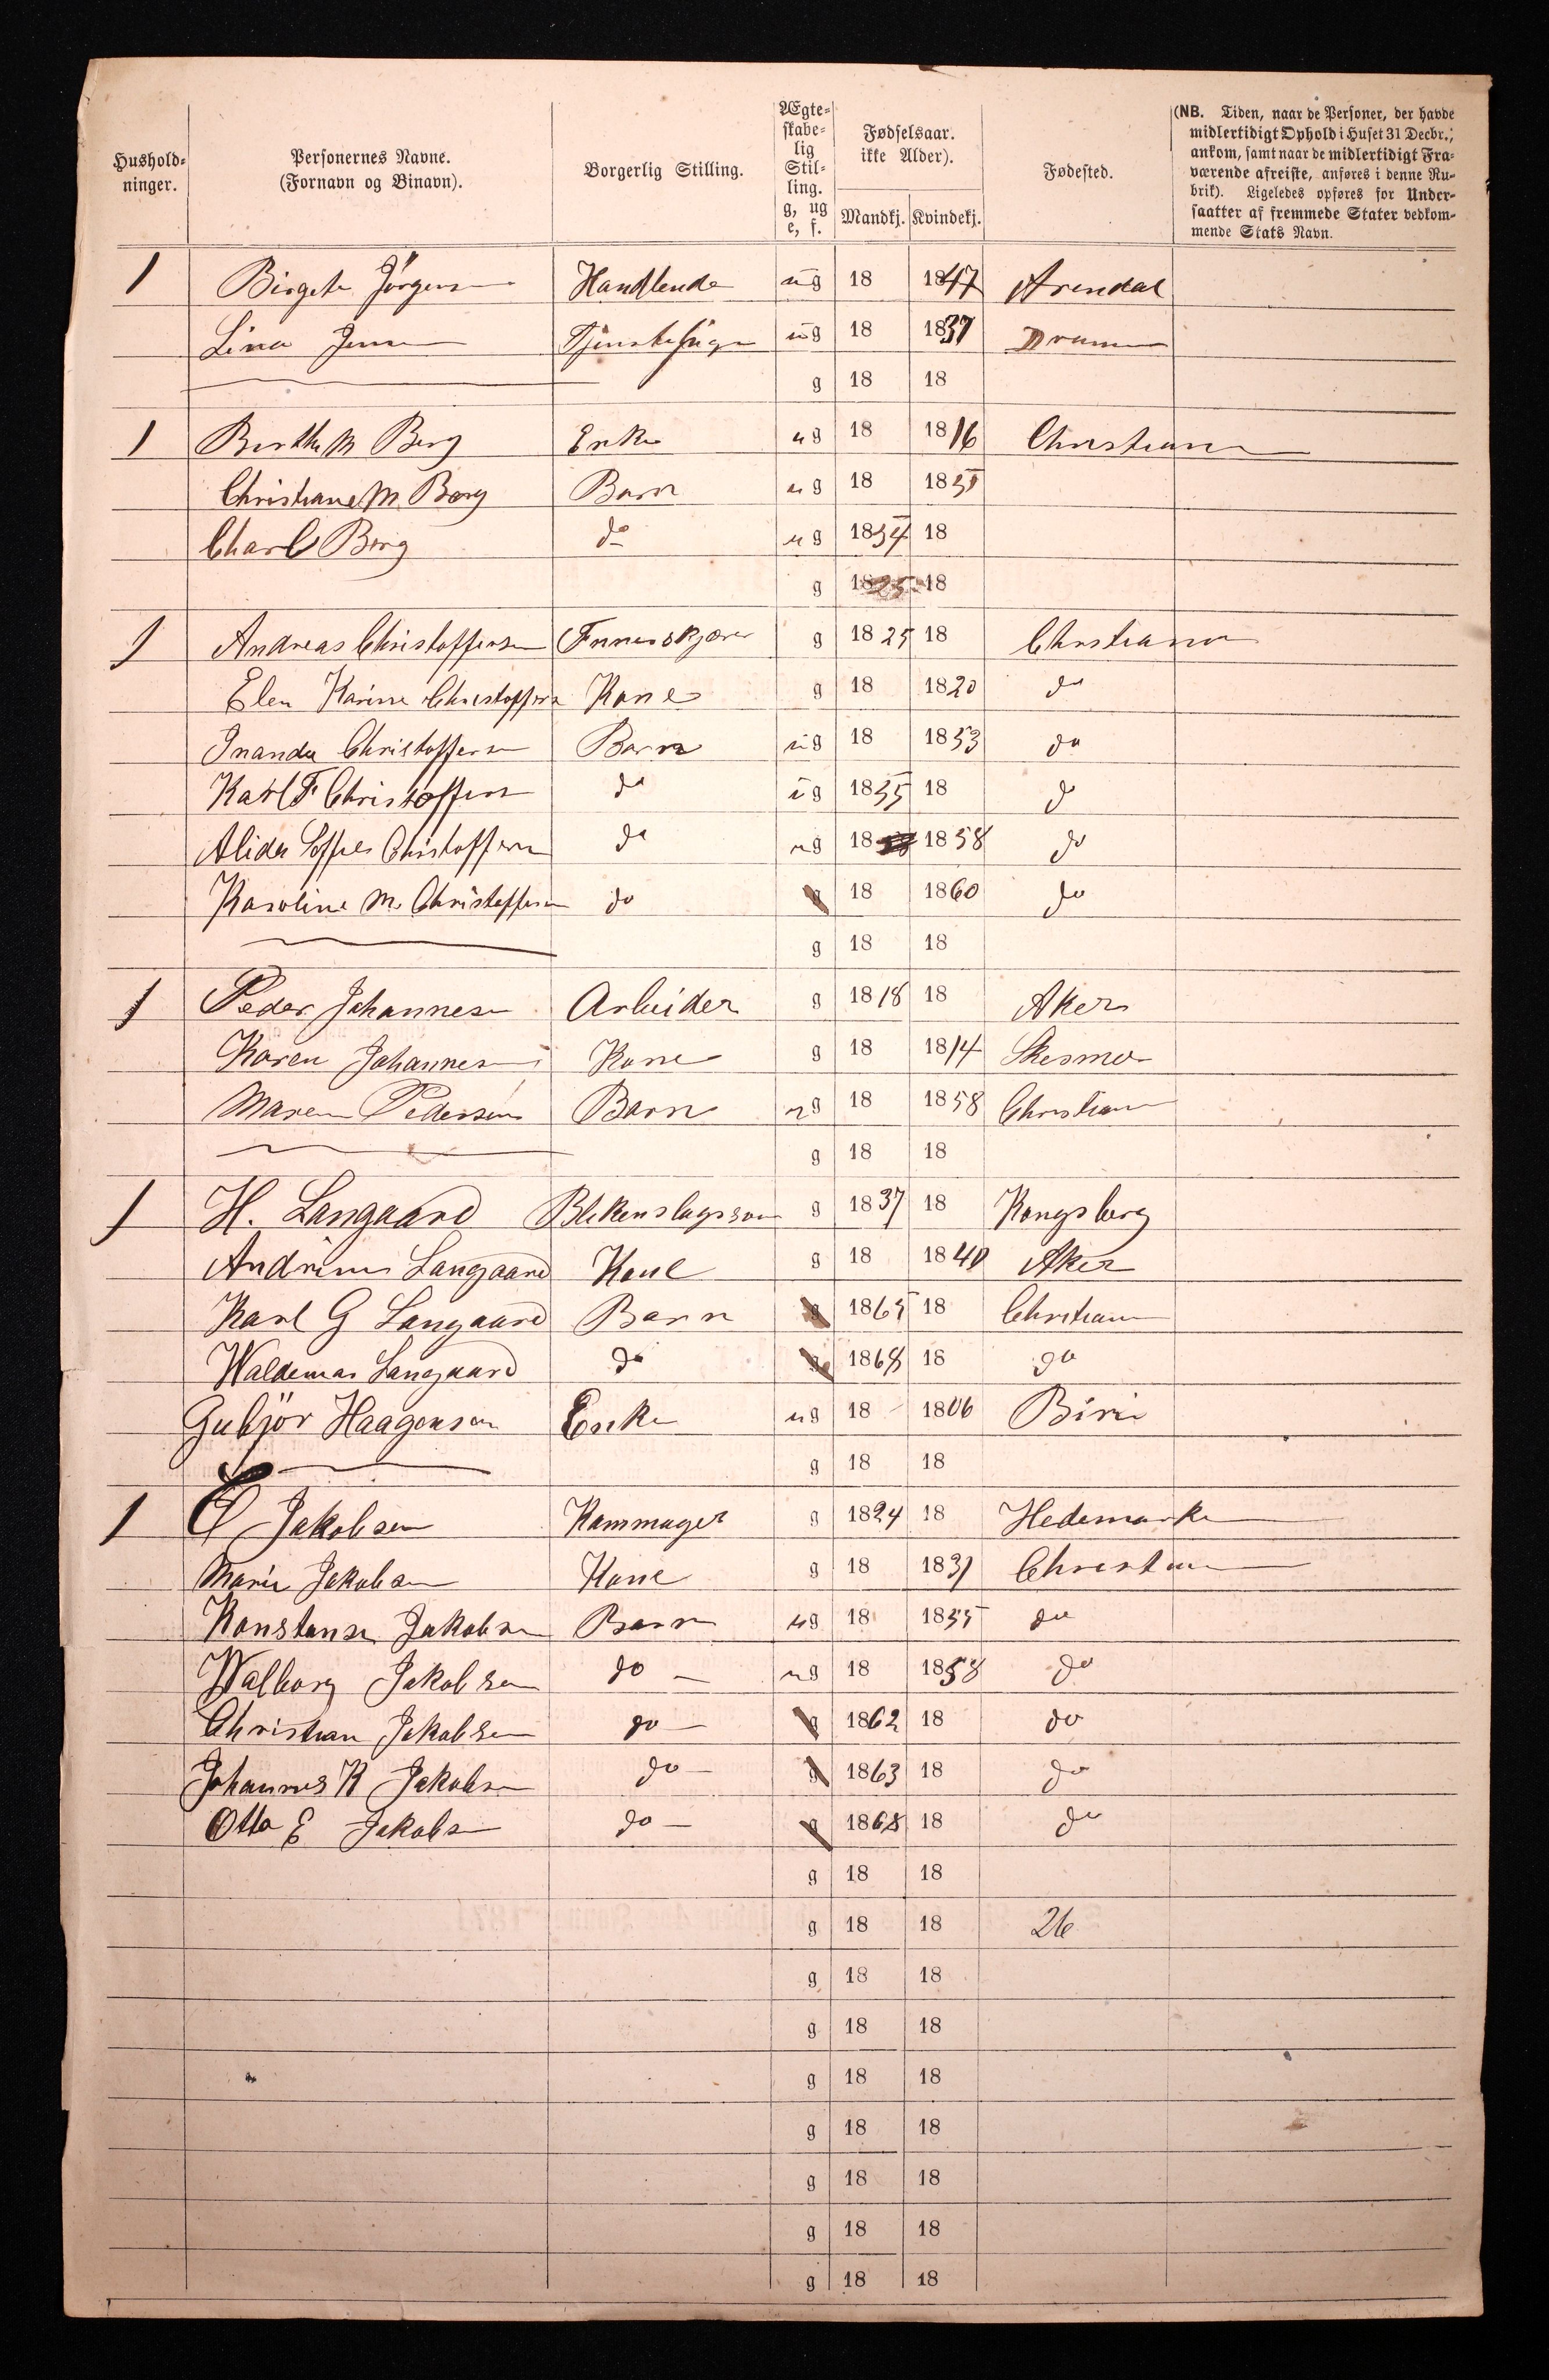 Hushold-
ninger.
Personernes Navne.
(Fornavn og Binavn).
Borgerlig Stilling.
Ægte-
skabe-
lig
Stil-
ling.
g, ug
e, f.
Fødselsaar.
ikke Alder).
Mandkj. Kvindekj.
Fødested.
(NB. Tiden, naar de Personer, der havde
midlertidigt Ophold i Huset 31 Decbr.,
ankom, samt naar de midlertidigt Fra-
værende afreiste, anføres i denne Ru-
brik). Ligeledes opføres for Under-
saatter af fremmede Stater vedkom-
mende Stats Navn.
1 Birgete Jörgens Handlende ug 18 1847 Arendal
Lina Jens ug 18 1837 Dramm
g 18 18
1 Berthe M Berg Enke ug 18 1816 Christiania
Christiane M. Berg Barn ug 18 18
Charl Berg do ug 1854 18
g 1825 18
1 Andreas Christoffersen g 1825 18 Christiania
Elen Karine Christoffers Kone g 18 1820 do
Inanda Christoffersen Barn ug 18 1853 do
Karl F Christoffers do ug 1855 18 do
Alida Christoffersen do ug 18 1858 do
Karoline M. Christoffersen do g 18 1860 do
g 18 18
1 Peder Johannesen Arbeider g 1818 18 Aker
Karen Johannesen Kone g 18 1814 Skesmo
Maren Pedersen Barn ug 18 1858 Christian
g 18 18
1 H. Langaard Blikenslagersven g 1837 18 Kongsberg
Langaard Kone g 18 1840 Aker
Karl G Langaard Barn g 1865 18 Christian
Waldemar Langaard do g 1868 18 do
Gubjör Haagensen Enke ug 18 1806 Biri
g 18 18
1 Jakobsen Kammager g 1824 18 Hedemarken
Marie Jakobsen Kone g 18 1831 Christian
Konstanse Jakobsen Barn ug 18 1855 do
Walborg Jakobsen do ug 18 1858 do
Christian Jakobsen do g 1862 18 do
Johannes K Jakobsen do g 1863 18 do
Otto E Jakobs do g 1868 18 do
g 18 18
g 18 18 26
g 18 18
g 18 18
g 18 18
g 18 18
g 18 18
g 18 18
g 18 18